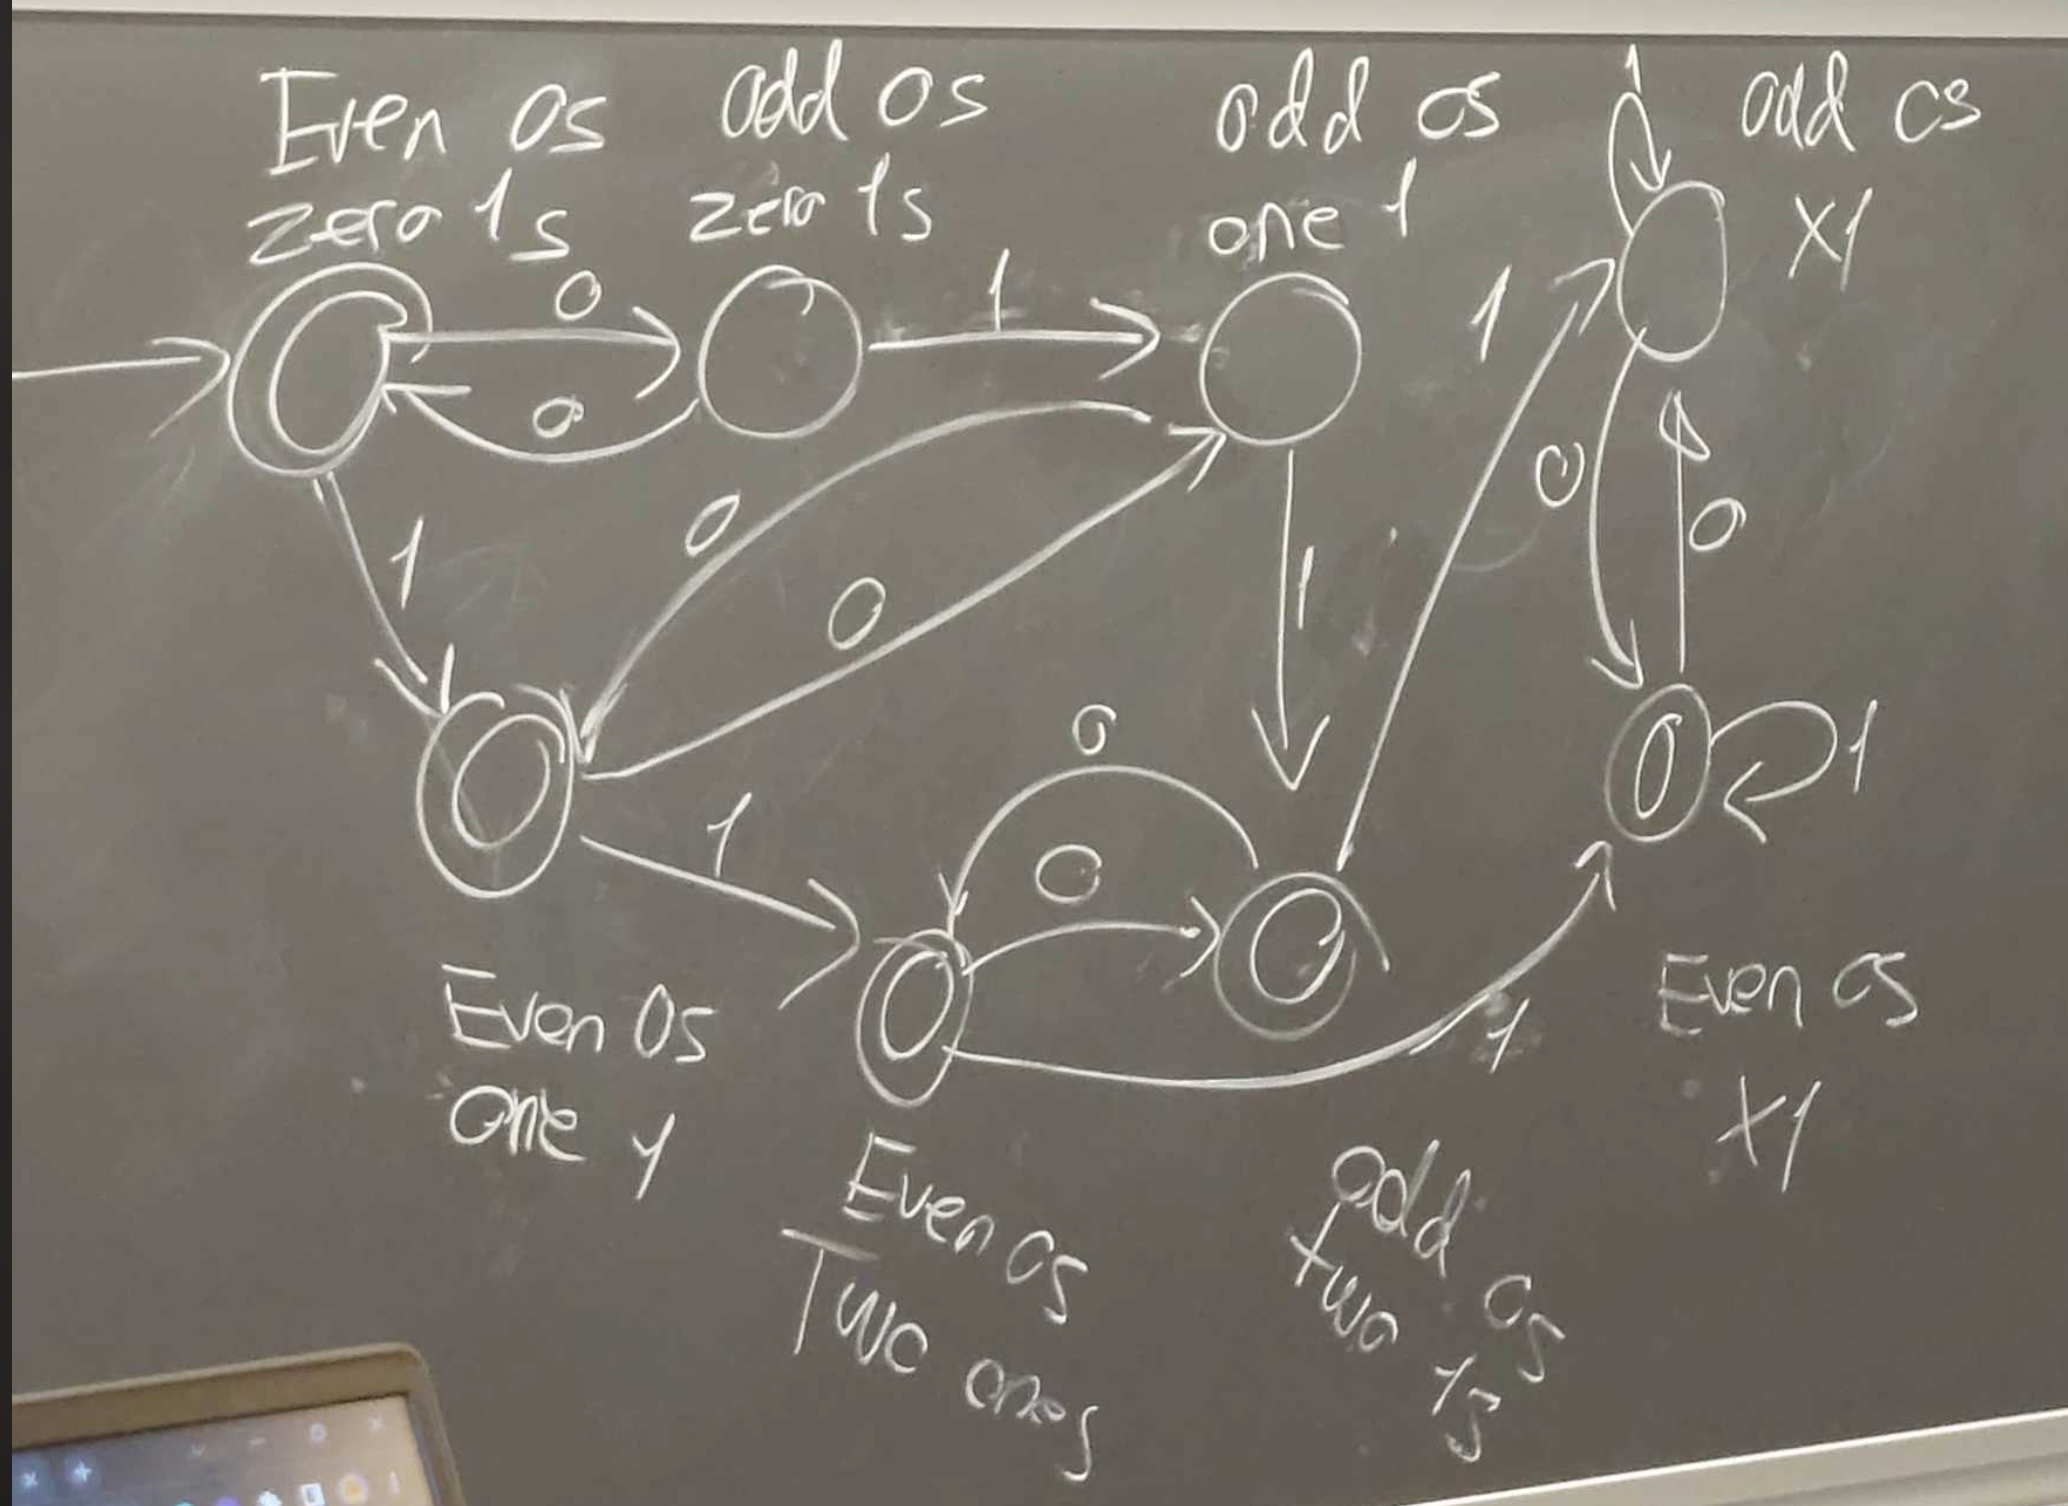 Even 0s
zero 1s
odd 0s
zero 1s
odd 0s
one 1
1
odd 0s
X1
0
1
1
0
0
0
1
0
0
1
1
0
1
0
0
1
1
Even 0s
one 1
Even 0s
Two ones
odd 0s
two 1s
Even 0s
X1